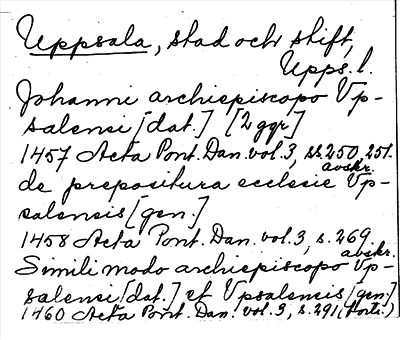 Uppsala, stad och stift,
Upps. l.
Johanni archiepiscopo Vp-
salensi [dat.] [2 ggr]
1457 Acta Pont. Dan. vol. 3, ss. 250, 251.
avskr.
de prepositura ecclesie Vp-
salensis [gen.]
1458 Acta Pont. Dan. vol. 3, s. 269.
avskr.
Simili modo archiepiscopo Vp-
salensi [dat.] et Vpsalensis [gen.]
1460 Acta Pont. Dan. vol. 3, s. 291, (forts.)